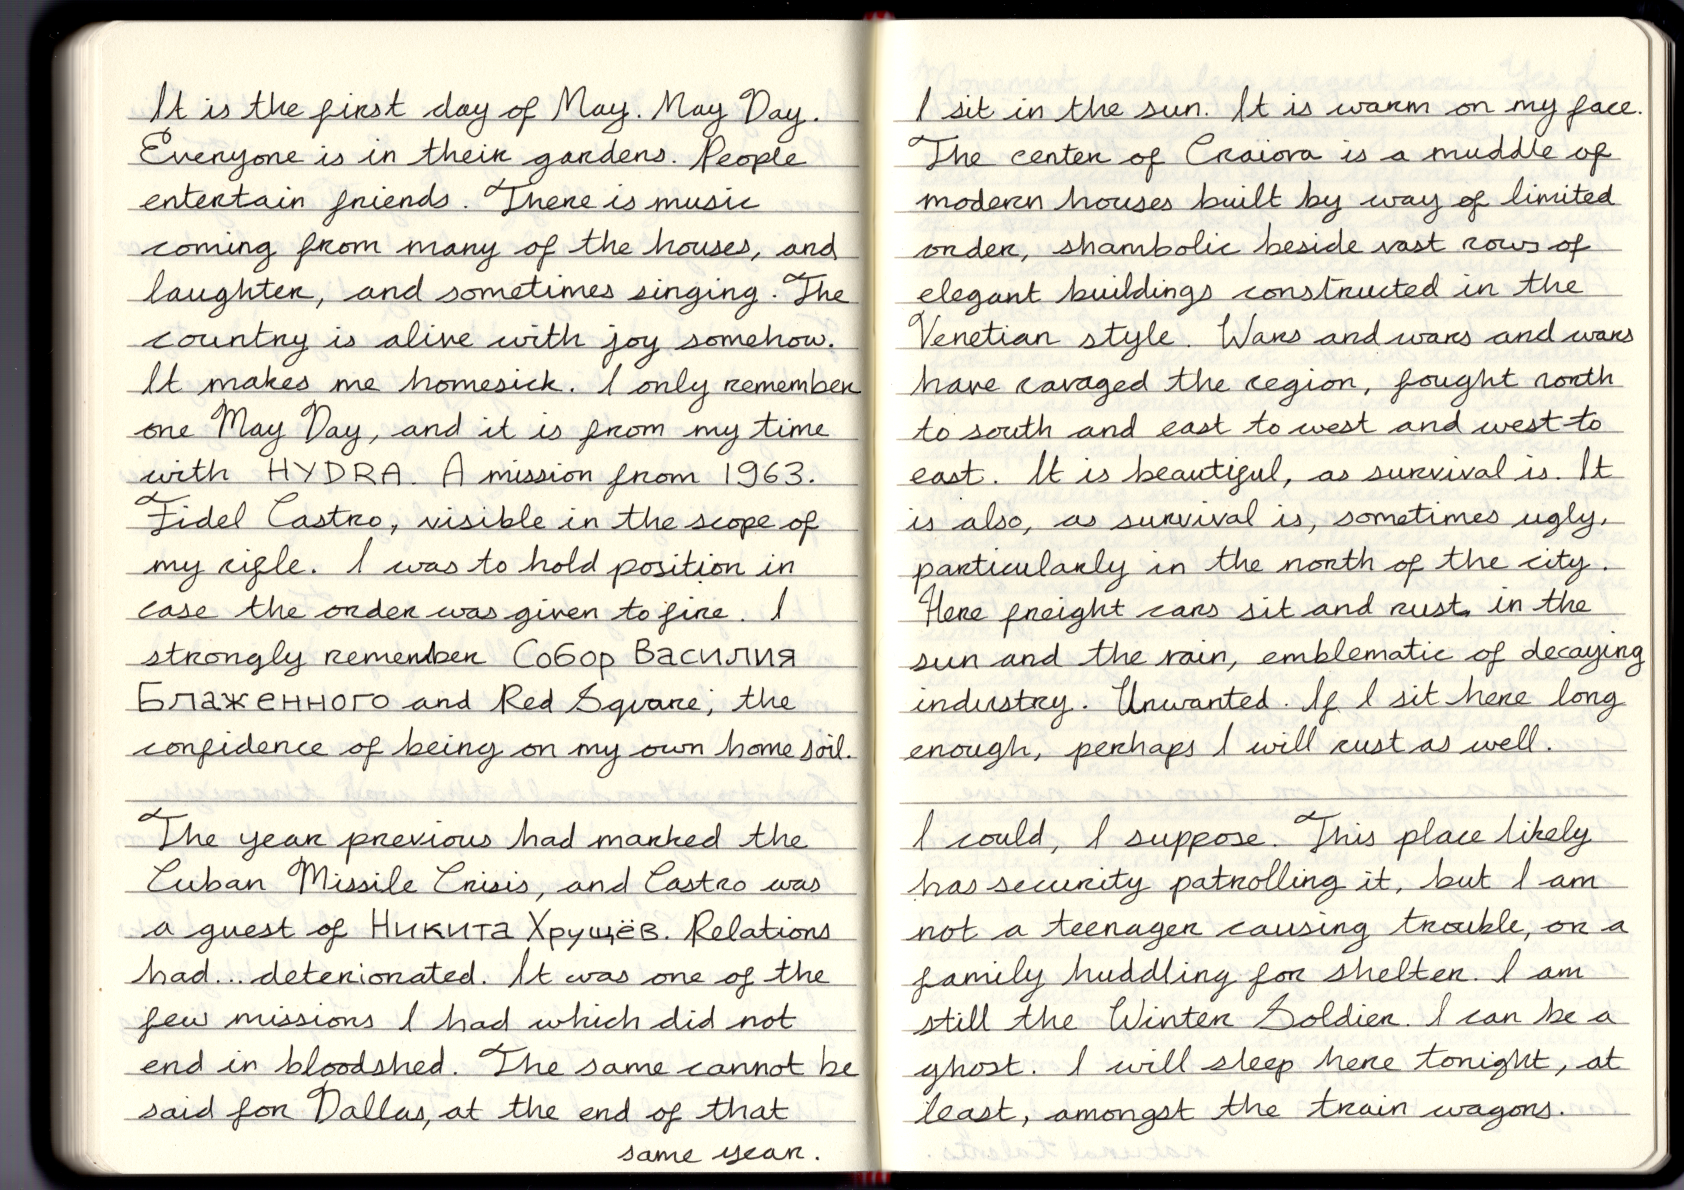 It is the first day of May. May Day.
Everyone is in their gardens. People
entertain friends. There is music
coming from many of the houses, and
laughter, and sometimes singing. The
country is alive with joy somehow.
It makes me homesick. I only remember
one May Day, and it is from my time
with HYDRA. A mission from 1963.
Fidel Castro, visible in the scope of
my rifle. I was to hold position in
case the order was given to fire. I
strongly remember Собор Василия
Блаженного and Red Square; the
confidence of being on my own home soil.
The year previous had marked the
Cuban Missile Crisis, and Castro was
a guest of Никита Хрущёв. Relations
had... deteriorated. It was one of the
few missions I had which did not
end in bloodshed. The same cannot be
said for Dallas, at the end of that
same year.
I sit in the sun. It is warm on my face.
The center of Craiova is a muddle of
modern houses built by way of limited
order, shambolic beside vast rows of
elegant buildings constructed in the
Venetian style. Wars and wars and wars
have ravaged the region, fought north
to south and east to west and west to
east. It is beautiful, as survival is. It
is also, as survival is, sometimes ugly,
particularly in the north of the city.
Here freight cars sit and rust in the
sun and the rain, emblematic of decaying
industry. Unwanted. If I sit here long
enough, perhaps I will rust as well.
I could, I suppose. This place likely
has security patrolling it, but I am
not a teenager causing trouble, or a
family huddling for shelter. I am
still the Winter Soldier. I can be a
ghost. I will sleep here tonight, at
least, amongst the train wagons.